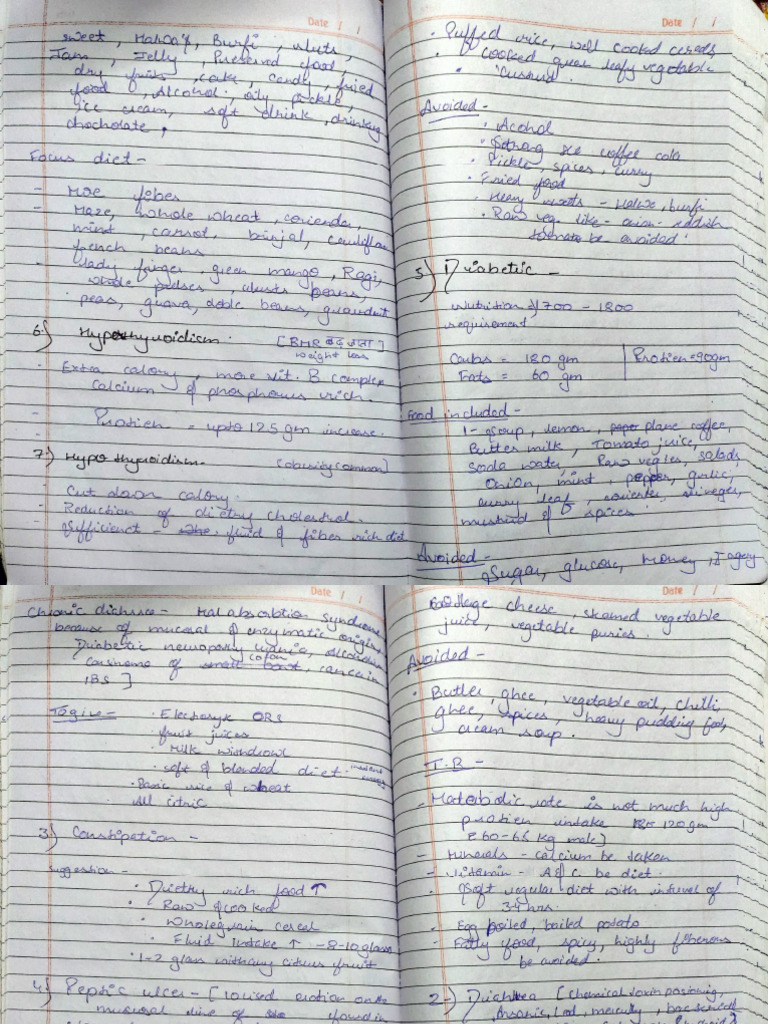 Date / /
sweet, Halwa's, Burfi, nuts,
Jam, Jelly, Preserved food
dry fruits, cake, candy, fried
food, Alcohol, oily pickle,
ice cream, soft drink, drinking
chocholate,
Focus diet -
- More fiber
- Maze, whole wheat, corienda,
mint, carrot, binjal, cauliflow
french beans
- lady finger, green mango, Ragi,
whole pulses, clusts beans,
peas, guava, doble beans,
6.) Hyperthyroidism. [BMR बढ़ जाता]
weight loss
- Extra calory, more vit. B complex
calcium & phosphorus rich.
- Protien = upto 125 gm increase.
7.) Hypothyroidism. (obesity common)
- Cut down calory.
- Reduction of dietry cholestrol.
- Sufficienct - fluid & fiber rich diet
Date / /
• Puffed rice, well cooked cereals,
• cooked green leafy vegetable
• custurd.
Avoided -
• Acohol
• Strong tea coffee cola
• Pickle, spices, curry
• Fried food
• Heavy sweets - Halwa, burfi
• Raw veg. like - onion reddish
tomato be avoided.
5) Diabetic -
Nutrition 1700 - 1800
requirement
Carbs = 180 gm | Protien = 90gm
Fats = 60 gm
Food included -
1 - Soup, lemon, plane coffee,
Butter milk, Tomato juice,
Soda water, Raw vegies, salads,
Onion, mint, pepper, garlic,
curry leaf, vineger,
mustard & spices.
Avoided -
Sugar, glucose, Honey, Jagery
Date / /
Chronic dichrrea - Malabsorbtion syndrome
because of mucosal & enzymatic origin,
Diabetic neuropathy
Carcinoma of colon
IBS]
Togive - • Electoryk ORS
• fruit juices
• Milk withdrawl
• soft & blended diet.
• Basic rice & wheat
• All citric
3.) Constipation -
suggestion -
• Dietry rich food ↑
• Raw & cooked
• Wholegrain cereal
• Fluid intake ↑ - 8-10 glass
• 1-2 glass with any citrus fruit
4.) Peptic ulcer - [
mucosal line of
Date / /
cheese, skamed vegetable
juice, vegetable puries.
Avoided -
• Butter, ghee, vegetable oil, chilli
ghee, spices, heavy pudding food,
cream soup.
T.B -
- Matabolic rate is not much high
protien intake 120gm
60-65 kg male]
- Minerals - calcium be taken
- vitamin - A & C be diet.
- Soft regular diet with interval of
3-4 hrs.
- Egg boiled, boiled potato
- Fatty food, spicy, highly fiberous
be avoided.
2-) Diahrea [chemical toxin poisoning,
Arsenic, lad, mercury, bacterial